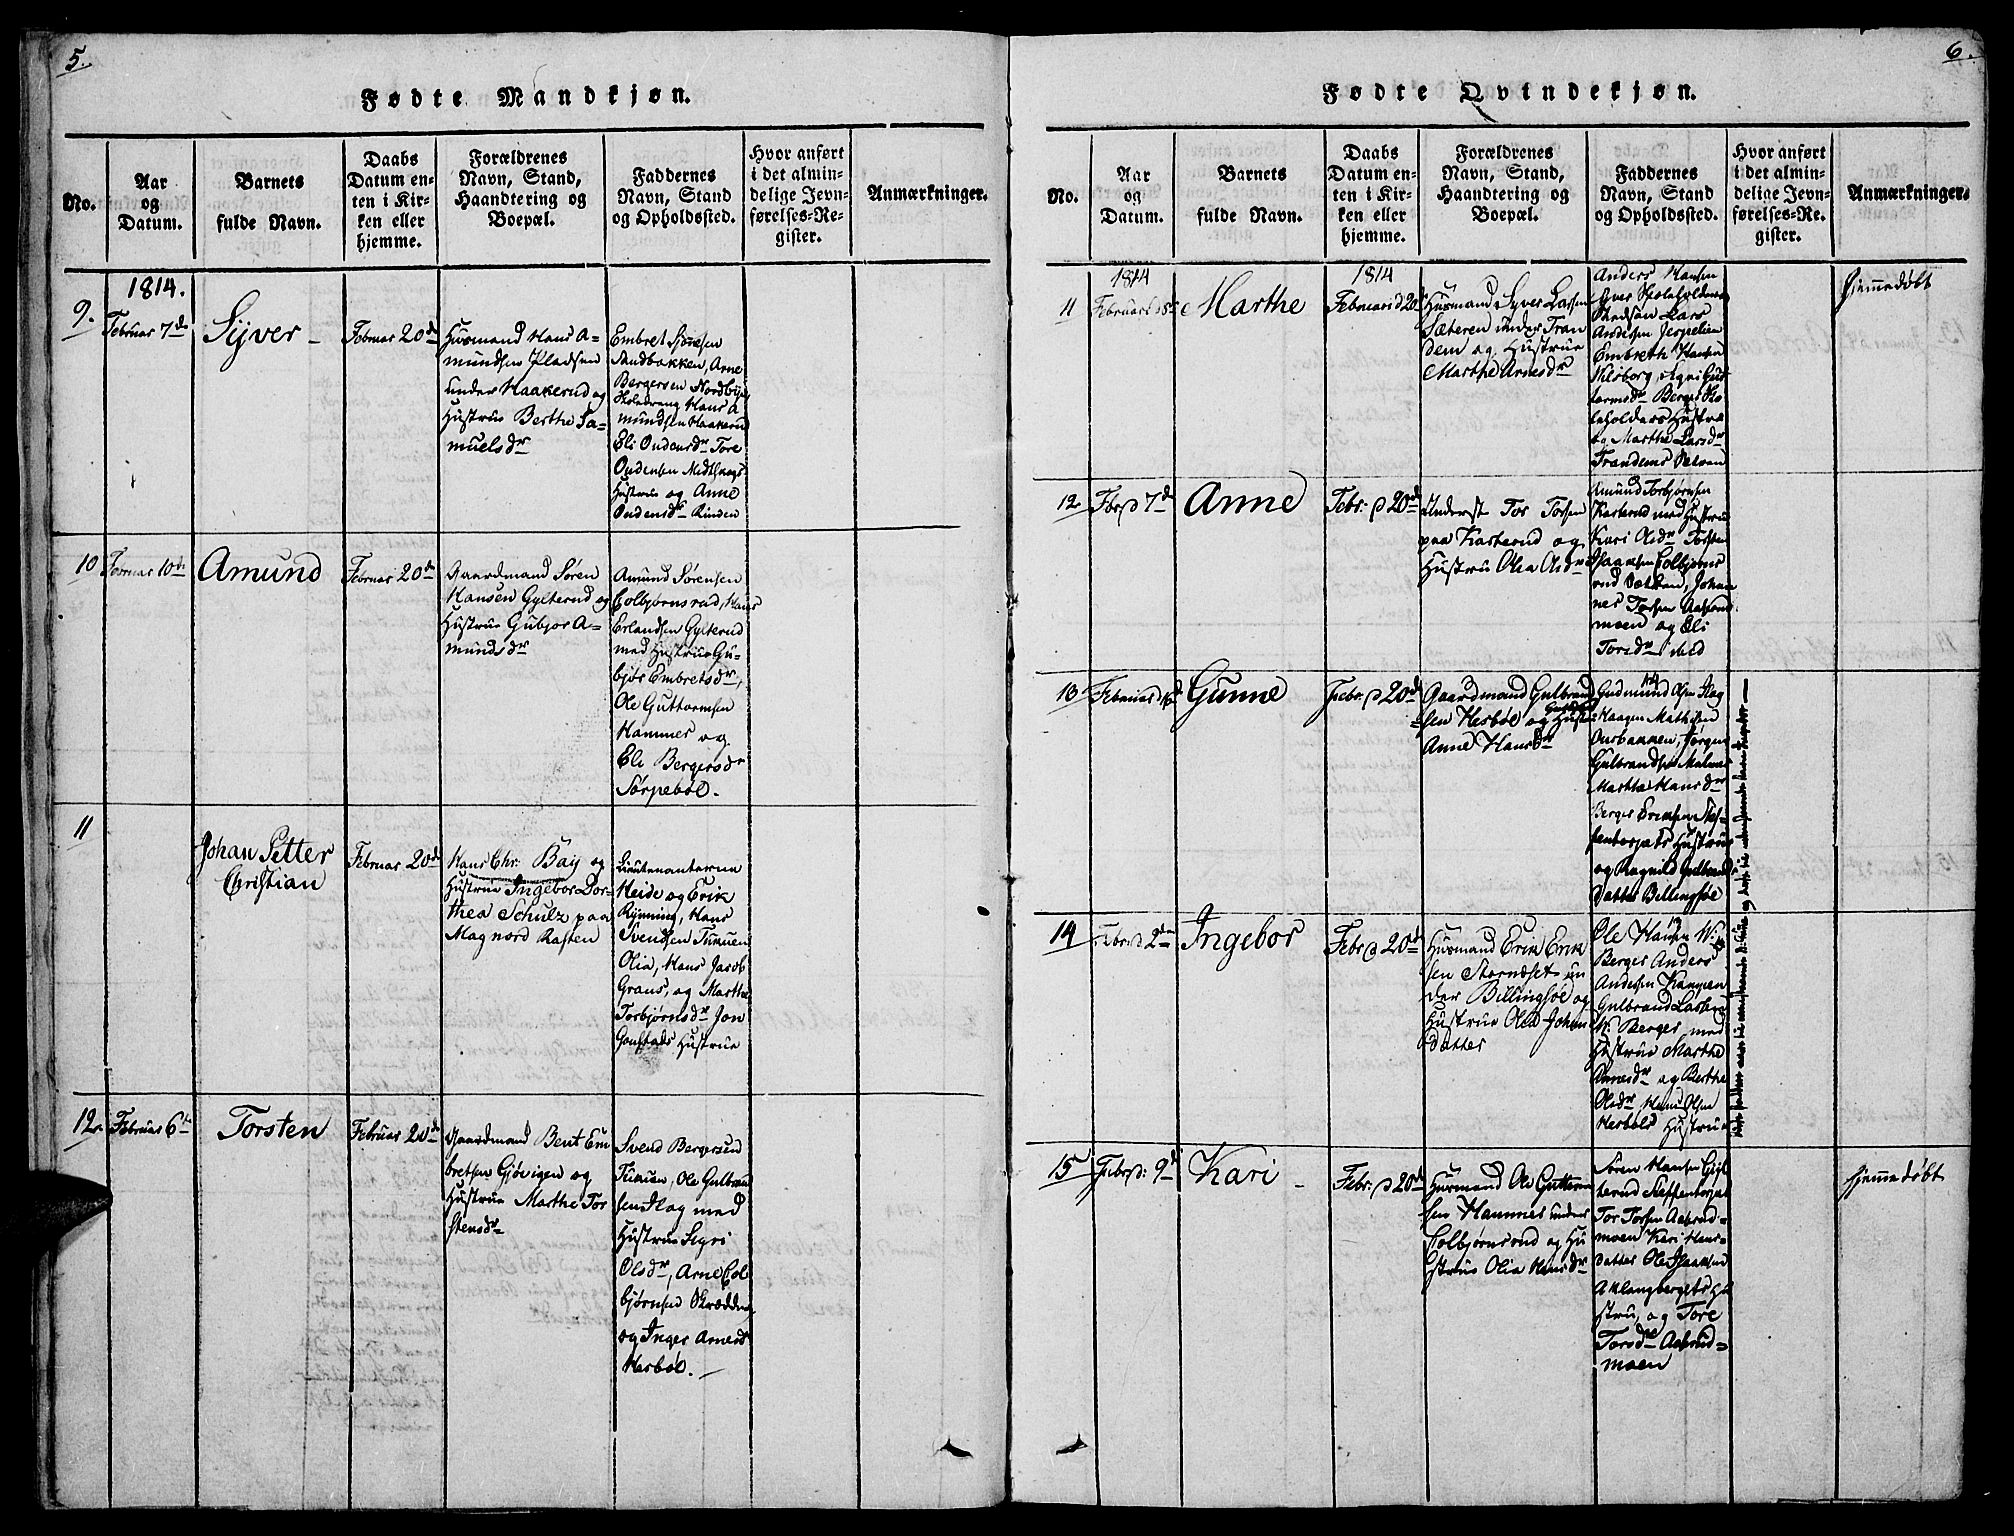 5.
Fødte Mandkjøn.
No.
Aar
og
Datum.
Barnets
fulde Navn.
Daabs
Datum en-
ten i Kir-
ken eller
hjemme.
Forældrenes
Navn, Stand,
Haandtering og
Boepæl.
Faddernes
Navn, Stand
og Opholdssted.
Hvor anført
i det almin-
delige Jevn-
førelses-Re-
gister.
Anmærkninger.
9.
1814.
Februar 7de
Syver
Februar 20de
Husmand Hans A-
mundsen Pladsen
under Haakerud og
Hustrue Berthe Sa-
muelsdr
Embret
Sandbakken, Arne
Bergersen Nordbye
Hans A
mundsen Haakerud
Eli Oudensdr Tore
Oudensen
Hustrue og Anne
Oudensdr Rinden
10
Februar 10de
Amund
Februar 20de
Gaardmand Søren
Hansen Gylterud og
Hustrue Gubjor A-
mundsdr
Amund Sørensen
Colbjørnsrud, Hans
Erlandsen Gylterud
med Hustrue Gu-
bjør Embretsdr,
Ole Guttormsen
Hammer og
Eli Bergersdr
Sørpebøl.
11
Johan Petter
Christian
Februar 20de
Hans Chr: Bay og
Hustrue Ingebor Dor-
thea Schulz paa
Magnord Rasten
Lieutenanterne
Heide og Erik
Rynning, Hans
Svendsen Turuen
Olia, Hans Jacob
Graus, og Marthe
Torbjørnsdr Jon
Gonstads Hustrue
12.
Februar 6te
Torsten
Februar 20de
Gaardmand Bent Em
bretsen Gjøvigen og
Hustrue Marthe Tor
stensdr
Svend Bergersen
Ole Gulbran
sen Flag med
Hustrue Sigri
Olsdr, Arne Col
bjørnsen Skrædder
og Inger Arnesdr
Herbøl.
6.
Fødte Qvindekjøn.
No.
Aar
og
Datum.
Barnets
fulde Navn.
Daabs
Datum en-
ten i Kir-
ken eller
hjemme.
Forældrenes
Navn, Stand,
Haandtering og
Boepæl.
Faddernes
Navn, Stand
og Opholdssted.
Hvor anført
i det almin-
delige Jevn-
førelses-Re-
gister.
Anmærkninger.
11
1814
Februari
Marthe
1814
Februari d 20de
Husmand Syver Larsen
Sæteren under Tran
dem og Hustrue
Marthe Arnesdr
Anders Hansen
Lars
Andersen
Embreth Hansen
Berger Sko
leholders Hustrue
og Marthe Larsdr
Trandems
Hjemmedøbt
12
Febr d 7de
Anne
Febr: d 20de
Inderst Tor Torsen
paa Karterud og
Hustru Olia Olsdr
Amund Torbjørnsen
Karterud med Hustrue
Kari Olsdr Torsten
Isaaksen Colbjørns
rud Johan
nes Torsen Aaserud
moen og Eli
Torsdr ibid
13
Gunne
Febr: d 20de
Gaardmand Gulbrand
sen Herbøl og Hustrue
Anne Hansdr
Gudmund Olsen Flag
Haagen Mathisen
Ourbakken, Jørgen
Gulbrandsen
Marthe Hansdr
Berger Eriksen Stef-
fentorpets Hustrue
og Ragnild Gulbrands
datter Billingsøe
14
Febr: d 2den
Ingebor
Febr d 20de
Husmand Erik Erik
sen Stornæset un
der Billingsøe og
Hustrue Olea Johans
datter
Ole Hansen
Berger Anders
Andersen Kampen
Gulbrand Larsen
N: Berger med
Hustrue Marthe
Arnesdr og Berthe
Olsdr Hans Olsen
Herbøls Hustrue
15
Febr: 9de
Kari
Febr: d 20de
Husmand Ole Guttorm
sen Hammer under
Colbjørnsrud og Hu
strue Olia Hansdr
Søren Hansen Gyl
terud Steffentorpet
Tor Torsen Aaserud-
moen Kari Hans-
datter Ole Isaaksen
Aklangbergets Hu
stru, og Tore
Torsdr Aaserud-
moen
Hjemmedøbt